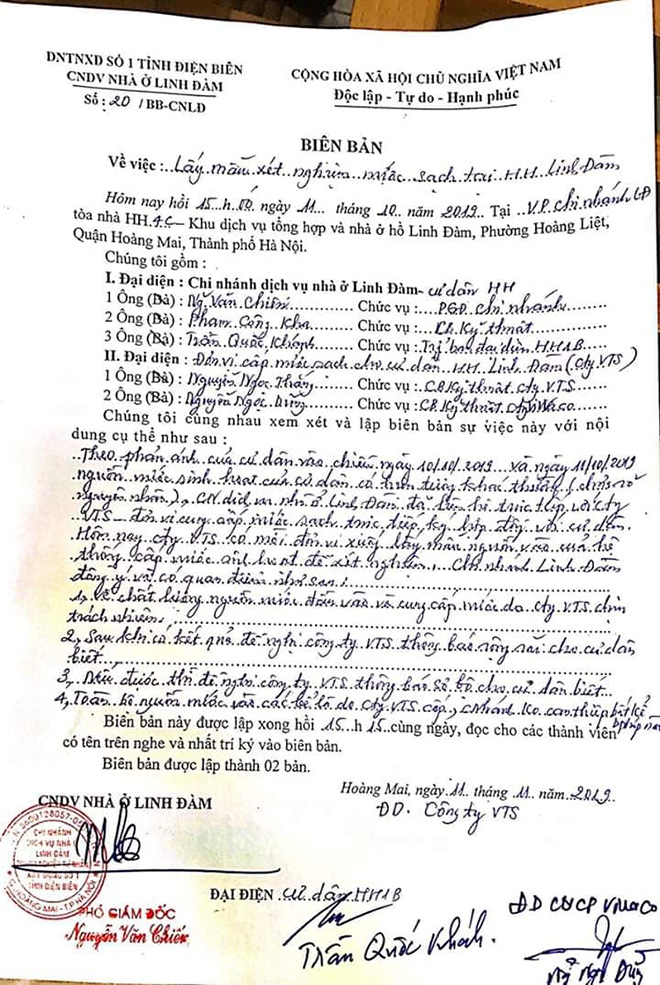 DNTNXD SỐ 1 TỈNH ĐIỆN BIÊN
CNDV NHÀ Ở LINH ĐÀM
Số: 20 / BB-CNLĐ
CỘNG HÒA XÃ HỘI CHỦ NGHĨA VIỆT NAM
Độc lập - Tự do - Hạnh phúc
BIÊN BẢN
Về việc: Lấy mẫu xét nghiệm nước sạch tại HH Linh Đàm
Hôm nay hồi 15 h 00 ngày 11 tháng 10 năm 2019 Tại V.P chi nhánh LĐ
tòa nhà HH 4C – Khu dịch vụ tổng hợp và nhà ở hồ Linh Đàm, Phường Hoàng Liệt,
Quận Hoàng Mai, Thành phố Hà Nội.
Chúng tôi gồm :
I. Đại diện : Chi nhánh dịch vụ nhà ở Linh Đàm - cư dân HH
1 Ông (Bà) : Ng Văn Chiến Chức vụ : PGĐ chi nhánh
2 Ông (Bà) : Phạm Công Kha Chức vụ : CB Kỹ thuật
3 Ông (Bà) : Trần Quốc Khánh Chức vụ : Tr/ban đại diện HH1B
II. Đại diện : Đơn vị cấp nước sạch cho cư dân HH Linh Đàm (Cty VTS)
1 Ông (Bà) : Nguyễn Ngọc Thắng Chức vụ : CB Kỹ thuật cty VTS
2 Ông (Bà) : Nguyễn Ngọc Dũng Chức vụ : CB Kỹ thuật cty Viwaco
Chúng tôi cùng nhau xem xét và lập biên bản sự việc này với nội
dung cụ thể như sau :
Theo phản ánh của cư dân vào chiều ngày 10/10/2019 và ngày 11/10/2019
nguồn nước sinh hoạt của cư dân có hiện tượng khác thường (chưa rõ
nguyên nhân), CN dịch vụ nhà ở Linh Đàm đã liên hệ trực tiếp với cty
VTS – đơn vị cung cấp nước sạch trực tiếp ký hợp đồng với cư dân.
Hôm nay cty VTS có mời đơn vị xuống lấy mẫu nguồn vào của hệ
thống cấp nước sinh hoạt để xét nghiệm. Chi nhánh Linh Đàm
đồng ý và có quan điểm như sau:
1, Về chất lượng nguồn nước đầu vào và cung cấp nước do cty VTS chịu
trách nhiệm.
2, Sau khi có kết quả đề nghị công ty VTS thông báo rộng rãi cho cư dân
biết.
3, Nếu được thì đề nghị công ty VTS thông báo sơ bộ cho cư dân biết.
4, Toàn bộ nguồn nước và các bể là do cty VTS cấp, CNhánh Ko can thiệp bất kể
Biên bản này được lập xong hồi 15 h 15 cùng ngày, đọc cho các thành viên
có tên trên nghe và nhất trí ký vào biên bản.
Biên bản được lập thành 02 bản.
Hoàng Mai, ngày 11 tháng 11 năm 2019
CNDV NHÀ Ở LINH ĐÀM
ĐD. Công ty VTS
CHI NHÁNH
DỊCH VỤ NHÀ Ở
LINH ĐÀM
XÂY DỰNG SỐ 1
TỈNH ĐIỆN BIÊN
Q. HOÀNG MAI - T.P HÀ NỘI
PHÓ GIÁM ĐỐC
Nguyễn Văn Chiến
ĐẠI DIỆN cư dân HH1B
Trần Quốc Khánh.
ĐD CTCP Viwaco